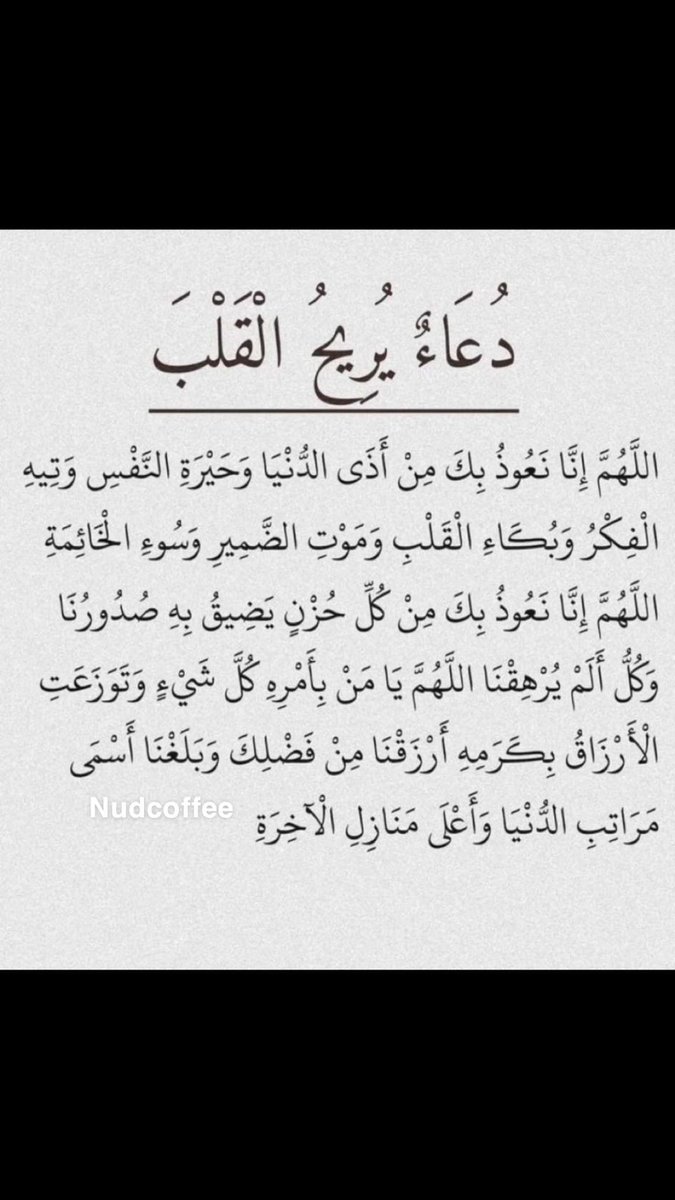 دُعَاءٌ يُرِيحُ الْقَلْبَ
اللَّهُمَّ إِنَّا نَعُوذُ بِكَ مِنْ أَذَى الدُّنْيَا وَحَيْرَةِ النَّفْسِ وَتِيهِ
الْفِكْرُ وَبُكَاءِ الْقَلْبِ وَمَوْتِ الضَّمِيرِ وَسُوءِ الْخَائِمَةِ
اللَّهُمَّ إِنَّا نَعُوذُ بِكَ مِنْ كُلِّ حُزْنٍ يَضِيقُ بِهِ صُدُورُنَا
وَكُلُّ أَلَمْ يُرْهِقْنَا اللَّهُمَّ يَا مَنْ بِأَمْرِهِ كُلَّ شَيْءٍ وَتَوَزَعَتِ
الْأَرْزَاقُ بِكَرَمِهِ أَرْزَقْنَا مِنْ فَضْلِكَ وَبَلَغْنَا أَسْمَى
مَرَاتِبِ الدُّنْيَا وَأَعْلَى مَنَازِلِ الْآخِرَةِ
Nudcoffee